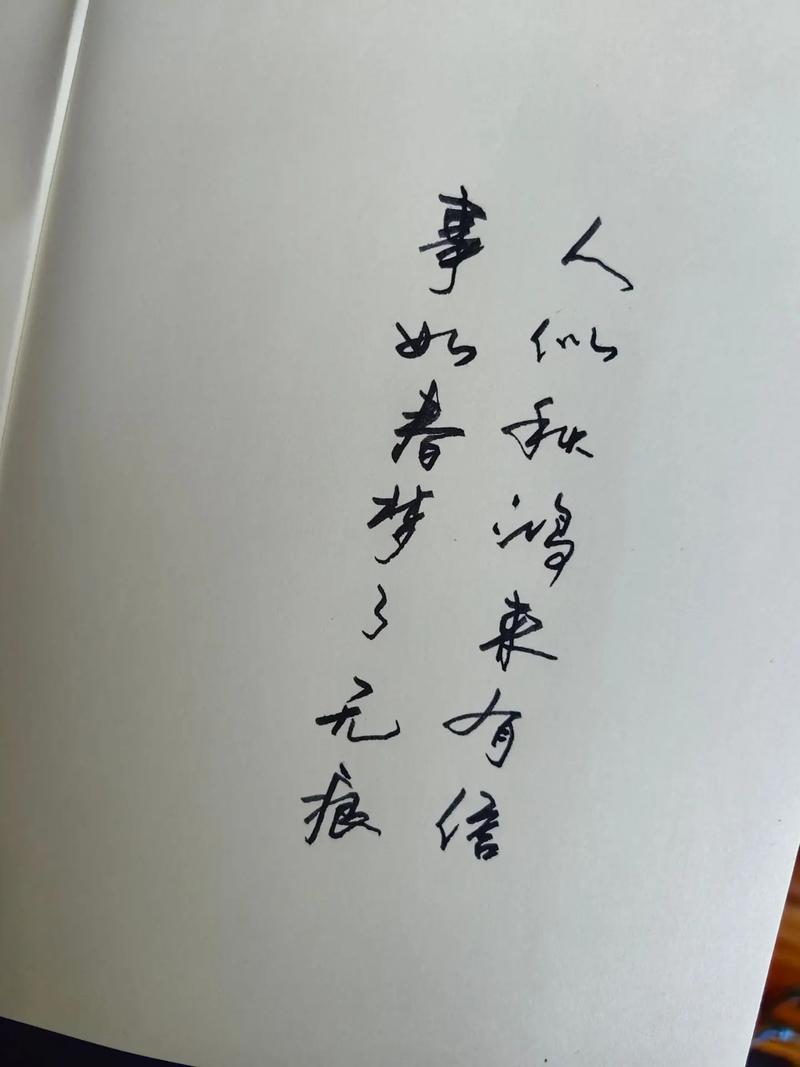 人似秋鸿来有信
事如春梦了无痕